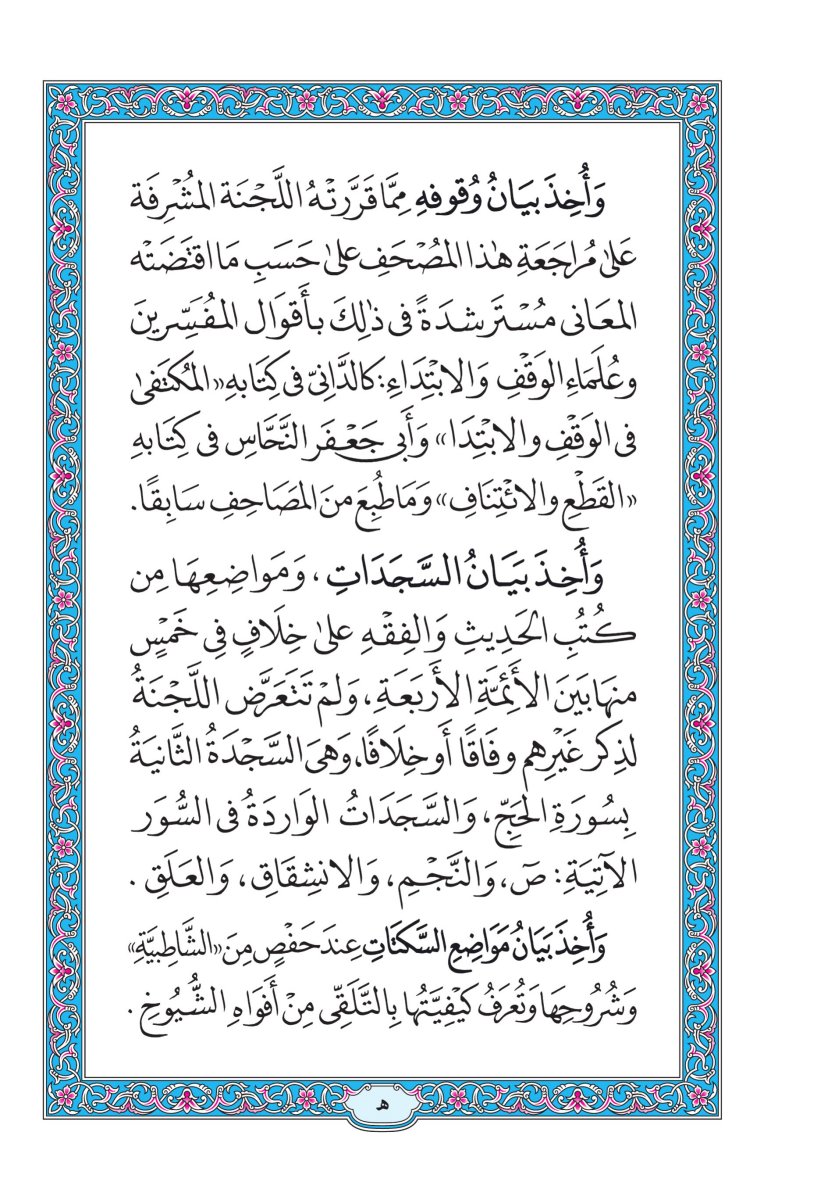 وَأُخِذَ بَيَانُ وُقُوفِهِ مِمَّا قَرَّرَتْهُ اللَّجْنَة المُشْرِفَة
عَلىٰ مُرَاجَعَةِ هٰذا المُصْحَفِ علىٰ حَسَبِ مَا اقتَضَتْه
المعَانى مسْتَرشدَةً فى ذٰلِكَ بأَقْوَال المفَسِّرينَ
وعُلَمَاءِ الوَقْفِ وَالابْتِدَاءِ: كَالدَّانِىّ فى كِتَابهِ «المُكتَفىٰ
فى الوَقْفِ والابْتِدَا» وَأَبى جَعْفَر النَّحَّاسِ فى كِتَابهِ
«القَطْعِ والائْتِنَافِ» وَمَاطُبِعَ منَ المَصَاحِفِ سَابِقًا.
وَأُخِذَ بَيَانُ السَّجَدَاتِ ، وَمَواضِعِهَا مِن
كُتُبِ الحَدِيثِ وَالفِقْهِ علىٰ خِلَافٍ فِى خَمْسٍ
منهَا بَيَنَ الأَئِمَّةِ الأَرْبَعَةِ، وَلَمْ تَتَعَرَّض اللَّجْنَةُ
لذِكر غَيْرِهم وفَاقًا أَوخِلَافًا، وَهىَ السَّجْدَةُ الثَّانيَةُ
بِسُورَةِ الحَجِّ، وَالسَّجَدَاتُ الوَاردَةُ فى السُّوَر
الآتِيَةِ: صٓ، وَالنَّجْمِ، وَالانشِقَاقِ، وَالعَلَقِ .
وَأُخِذَ بَيَانُ مَوَاضِعِ السَّكتَاتِ عِندَ حَفْصٍ مِنَ «الشَّاطِبيَّةِ»
وَشُرُوحِهَا وَتُعرَفُ كَيْفِيَّتُها بِالتَّلَقِّى مِنْ أَفوَاهِ الشُّيُوخِ .
ﻫ